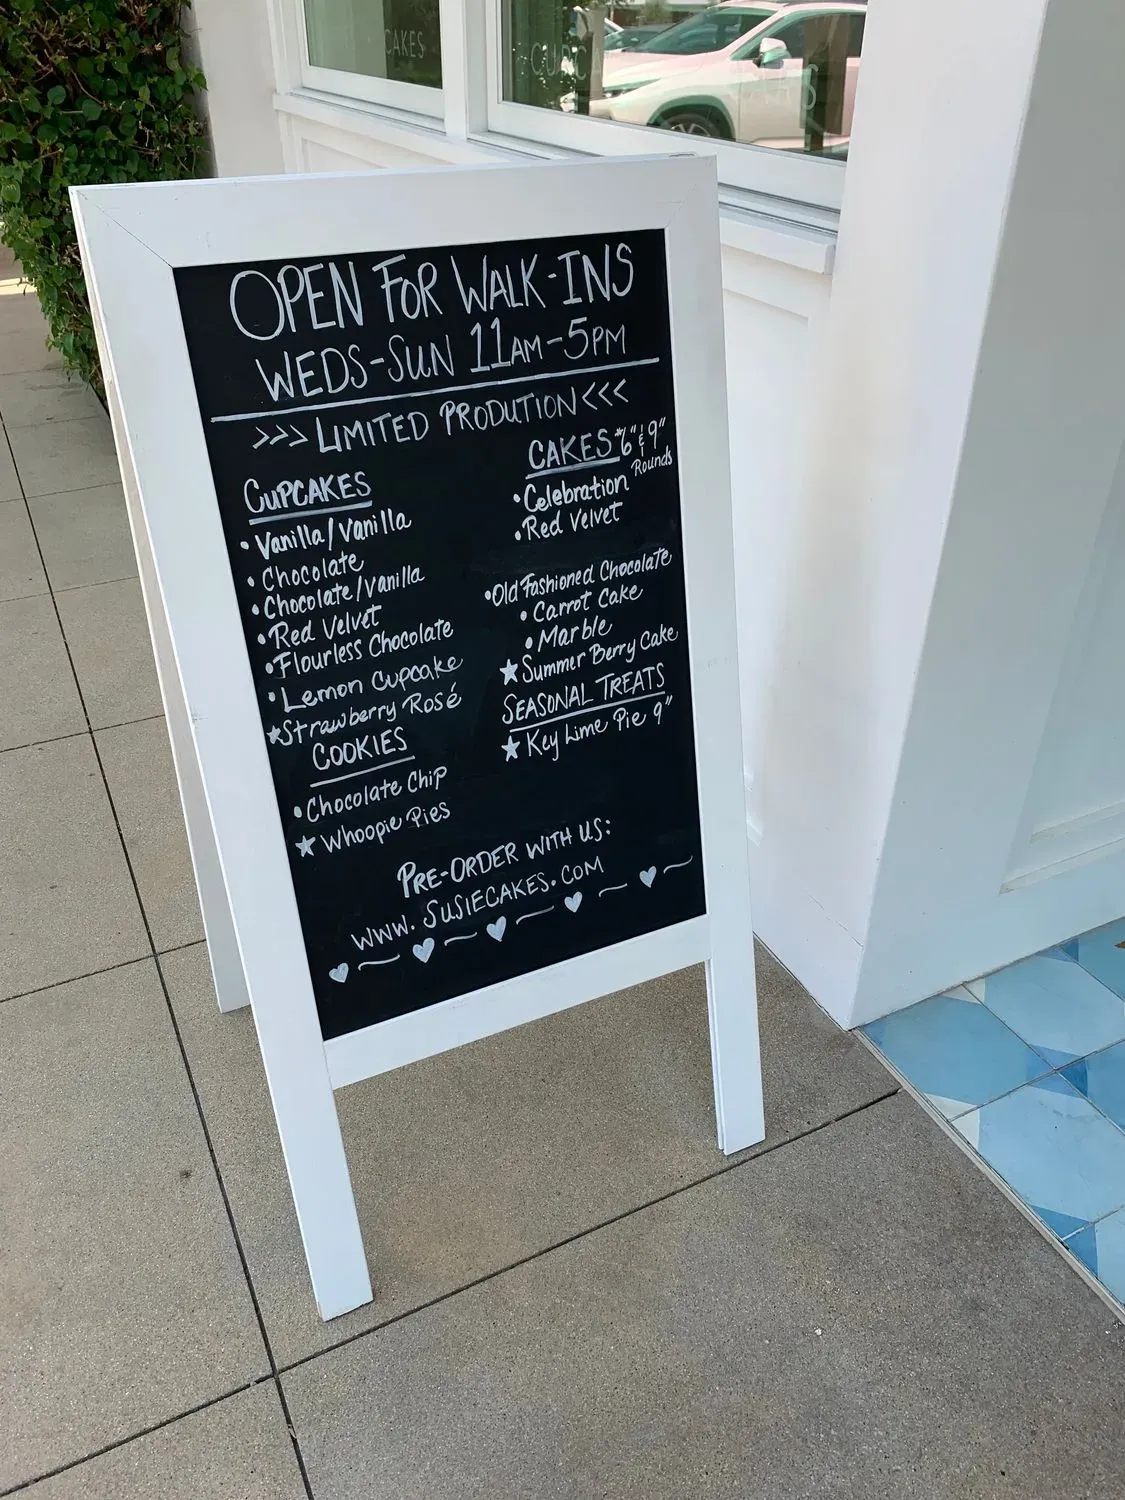 OPEN FOR WALK-INS
WEDS-SUN 11AM-5PM
>>> LIMITED PRODUTION <<<
CUPCAKES
• Vanilla/Vanilla
• Chocolate
• Chocolate/Vanilla
• Red Velvet
• Flourless Chocolate
• Lemon Cupcake
★ Strawberry Rosé
COOKIES
• Chocolate Chip
★ Whoopie Pies
CAKES *6" & 9"
Rounds
• Celebration
• Red Velvet
• Old Fashioned Chocolate
• Carrot Cake
• Marble
★ Summer Berry Cake
SEASONAL TREATS
★ Key Lime Pie 9"
PRE-ORDER WITH US:
WWW.SUSIECAKES.COM
CAKES